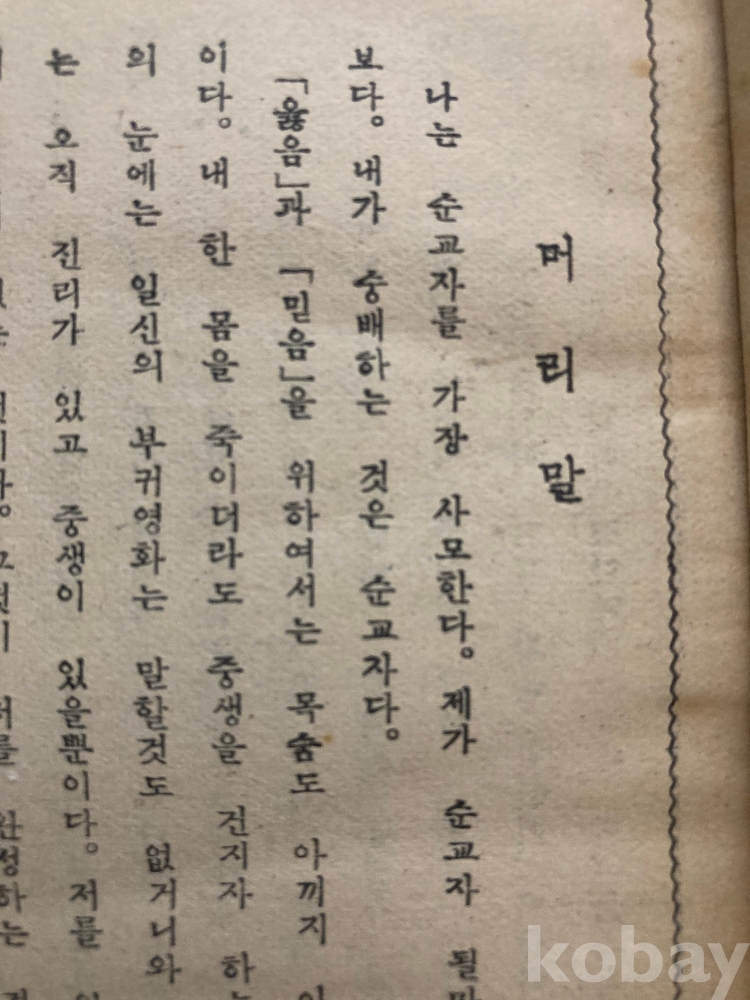 머리말
나는 순교자를 가장 사모한다。 제가 순교자 될
보다。 내가 숭배하는 것은 순교자다。
「옳음」과 「믿음」을 위하여서는 목숨도 아끼지
이다。 내 한 몸을 죽이더라도 중생을 건지자 하는
의 눈에는 일신의 부귀영화는 말할것도 없거니와
는 오직 진리가 있고 중생이 있을뿐이다。 저를
저를 완성하는
kobay